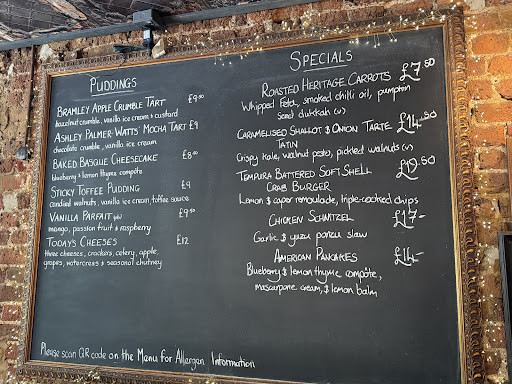 PUDDINGS
BRAMLEY APPLE CRUMBLE TART £9.50
hazelnut crumble, vanilla ice cream & custard
ASHLEY PALMER-WATTS' MOCHA TART £9
chocolate crumble, vanilla ice cream
BAKED BASQUE CHEESECAKE £8.00
blueberry & lemon thyme compôte
STICKY TOFFEE PUDDING £9
candied walnuts, vanilla ice cream, toffee sauce
VANILLA PARFAIT £9.50
mango, passion fruit & raspberry
TODAY'S CHEESES £12
three cheeses, crackers, celery, apple,
grapes, watercress & seasonal chutney
SPECIALS
ROASTED HERITAGE CARROTS £7.50
Whipped Feta, smoked chilli oil, pumpkin
seed dukkah (v)
CARAMELISED SHALLOT & ONION TARTE £14.50
TATIN
Crispy kale, walnut pesto, pickled walnuts (v)
TEMPURA BATTERED SOFT SHELL £19.50
CRAB BURGER
Lemon & caper remoulade, triple-cooked chips
CHICKEN SCHNITZEL £17-
Garlic & yuzu ponzu slaw
AMERICAN PANCAKES £14-
Blueberry & lemon thyme compôte,
mascarpone cream, & lemon balm
Please scan QR code on the Menu for Allergen Information